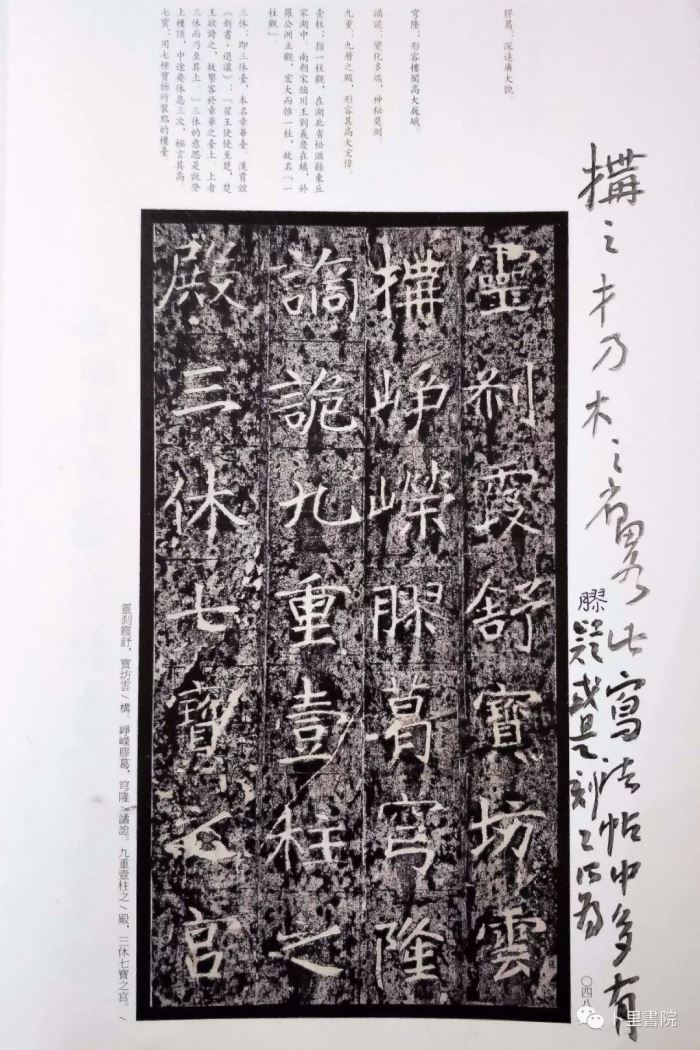 膠葛：深遠廣大貌。
穹隆：形容樓閣高大巍峨。
譎詭：變化多端，神秘莫測。
九重：九層之殿，形容其高大宏偉。
壹柱：指一柱觀，在湖北省松滋縣東丘
宋湖中。南朝宋臨川王劉義慶在鎮，於
羅公洲立觀，宏大而惟一柱，故名「一
柱觀」。
三休：即三休臺，本名章華臺。漢賈誼
《新書·退讓》：「翟王使使至楚，楚
王欲誇之，故饗客於章華之臺上。上者
三休而乃至其上。」三休的意思是說登
上樓頂，中途要休息三次，極言其高。
七寶：用七種寶物所裝點的樓臺。
搆之扌乃木之省畧此寫法帖中多有
膠疑或是刻工所為
靈剎霞舒寶坊雲
搆崢嶸膠葛穹隆
譎詭九重壹柱之
殿三休七寶之宮
靈剎霞舒，寶坊雲/構。崢嶸膠葛，穹隆/譎詭。九重壹柱之/殿，三休七寶之宮。/
〇四八
卜里書院